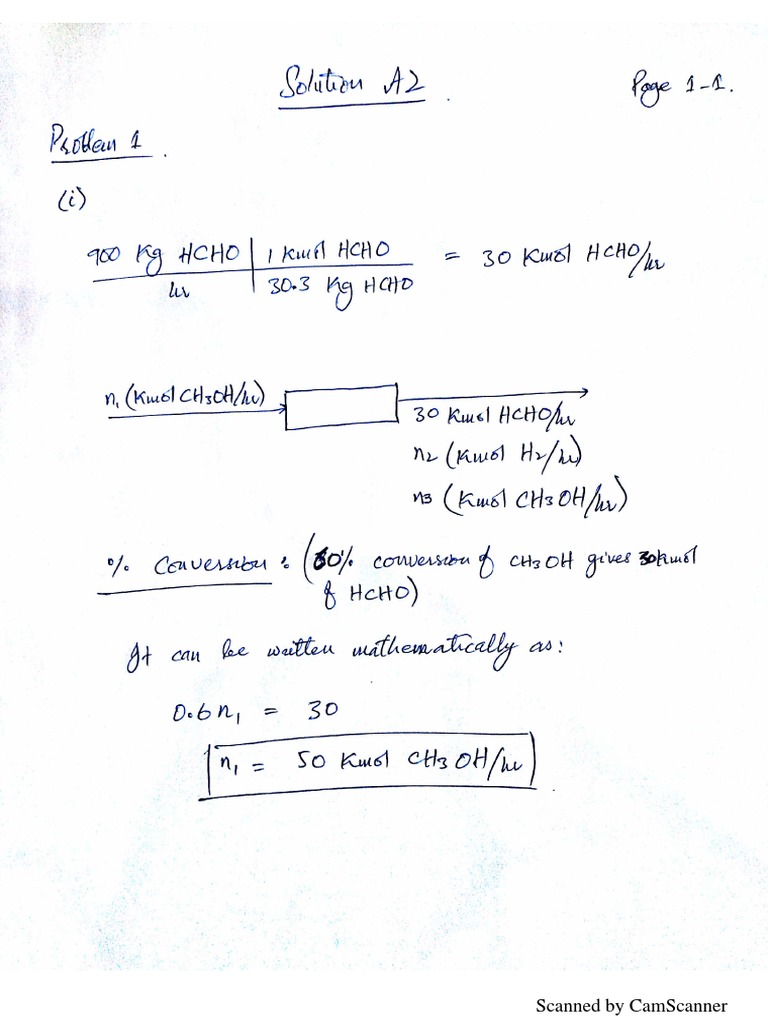 Solution A2.
Page 1-1.
Problem 1.
(i)
900 Kg HCHO | 1 Kmol HCHO = 30 Kmol HCHO/hr
hr | 30.3 Kg HCHO
n1 (Kmol CH3OH/hr)
30 Kmol HCHO/hr
n2 (Kmol H2/hr)
n3 (Kmol CH3OH/hr)
% Conversion : (60% conversion of CH3OH gives 30 kmol
of HCHO)
It can be written mathematically as:
0.6 n1 = 30
n1 = 50 Kmol CH3OH/hr
Scanned by CamScanner